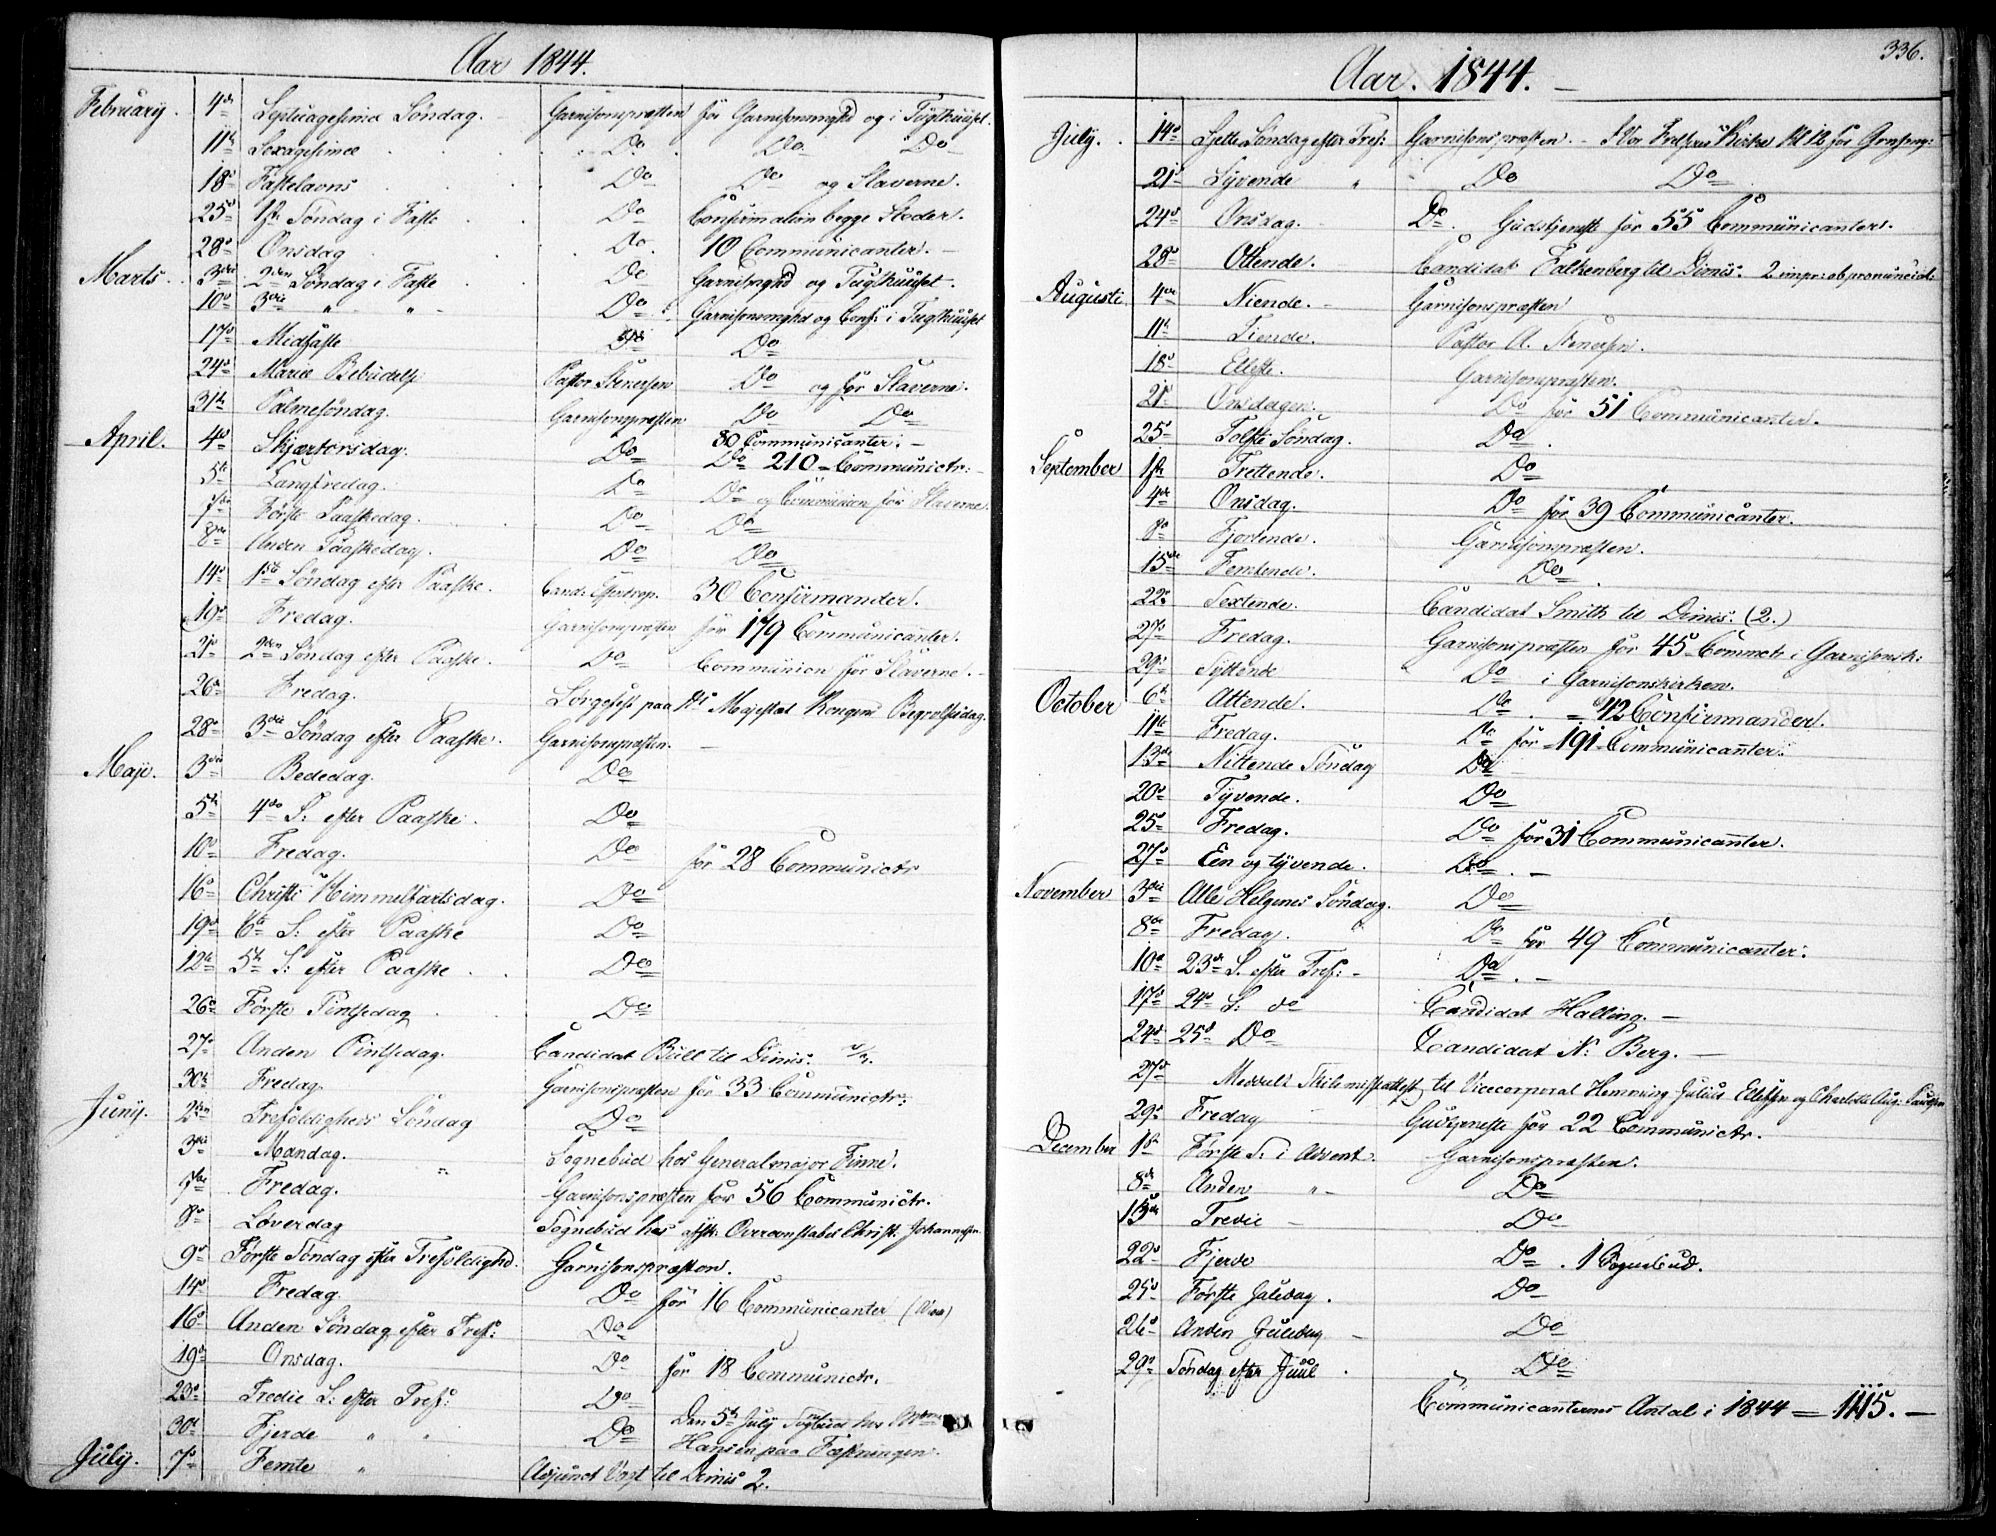 Aar 1844.
February. 4de Septuagesima Søndag. Garnisonspræsten for Garnisonsmenighd og i Tugthuuset.
11te Sexagesima Do Do Do
18de Fastelavns Do Do og Slaverne.
25de 1ste Søndag i Faste Do Confirmation begge Steder.
28de Onsdag Do 10 Communicanter.
Marts. 3die 2den Søndag i Faste Do Garnisonsmghd og Tugthuuset.
10de 3die " " Do Garnisonsmghd og Conf: i Tugthuuset
17de Midfaste Do Do
24de Mariæ Bebudelse Pastor Stenersen Do og for Slaverne.
31te Palmesøndag. Garnisonspræsten Do Do
April. 4de Skjærtorsdag. Do 80 Communicanter.
5te Langfredag. Do Do 210 Communictr:
7de Første Paaskedag. Do Do og Communion for Slaverne.
8de Anden Paaskedag. Do Do
14de 1ste Søndag efter Paaske. Cand: 30 Confirmander.
19de Fredag. Garnisonspræsten for 179 Communicanter.
21de 2den Søndag efter Paaske. Do Communion for Slaverne.
26de Fredag. Sørgefest paa Hs Majestæt Kongens Begravelsesdag.
28de 3die Søndag efter Paaske. Garnisonspræsten.
Maji. 3die Bededag. Do
5te 4de S: efter Paaske. Do
10de Fredag. Do for 28 Communictr
16de Christi Himmelfartsdag. Do
19de 6te S: efter Paaske Do
12te 5te S: efter Paaske. Do
26de Første Pintsedag Do
27de Anden Pintsedag. Candidat Bull til Dimis:
30te Fredag. Garnisonspræsten for 33 Communictr:
Juny. 2den Trefoldigheds Søndag Do
3die Mandag. Sognebud hos Generalmajor Finne.
7de Fredag. Garnisonspræsten for 56 Communictr.
8de Løverdag Sognebud hos afsk: Overconstabel Christ: Johannesen
9de Første Søndag efter Trefoldighd. Garnisonspræsten.
14de Fredag. Do for 16 Communicanter
16de Anden Søndag efter Tref: Do
19de Onsdag. Do for 18 Communictr.
23de Tredie S: efter Tref: Do
30te Fjerde " " Do Den 5te July Sognebud hos
July. 7de Femte " Hansen paa Fæstningen.
Adjunct Vogt til Dimis 2.
336.
Aar. 1844.
July. 14de Sjette Søndag efter Tref: Garnisonspræsten. I Vor Frelsers Kirke Kl 12 for
21de Syvende " Do Do
24de Onsdag. Do Gudstjeneste for 55 Communicanter.
28de Ottende. Candidat Falkenberg til Dimis. 2
Augusti 4de Niende. Garnisonspræsten
11te Tiende. Pastor A. Stenersen.
18de Ellefte. Garnisonspræsten.
21de Onsdagen. Do for 51 Communicanter.
25de Tolfte Søndag. Do
September 1ste Trettende. Do
4de Onsdag. Do for 39 Communicanter.
8de Fjortende. Garnisonspræsten.
15de Femtende. Do
22de Sextende. Candidat Smith til Dimis: (2.)
27de Fredag. Garnisonspræsten for 45 Commctr i Garnisonsk:
29de Syttende Do i Garnisonskirken.
October 6te Attende. Do 42 Confirmander.
11te Fredag. Do for 191 Communicanter.
13de Nittende Søndag Do
20de Tyvende. Do
25de Fredag. Do for 31 Communicanter.
27de Een og tyvende. Do
November 3die Alle Helgenes Søndag. Do
8de Fredag. Do for 49 Communicanter.
10de 23de S. efter Tref: Do
17de 24de S: do Candidat Halling.
24de 25de Do Candidat N: Berg.
27de Meddeelt Skilsmisseattest til Vicecorporal Hemming Julius Ellefsen og Charlotte Aug:
29de Fredag Gudstjeneste for 22 Communictr.
December 1ste Første S. i Advent. Garnisonspræsten.
8de Anden " Do
15de Tredie Do
22de Fjerde Do 1 Sognebud.
25de Første Juledag. Do
26de Anden Juledag Do
29de Søndag efter Juul Do
Communicanternes Antal i 1844 = 1115.